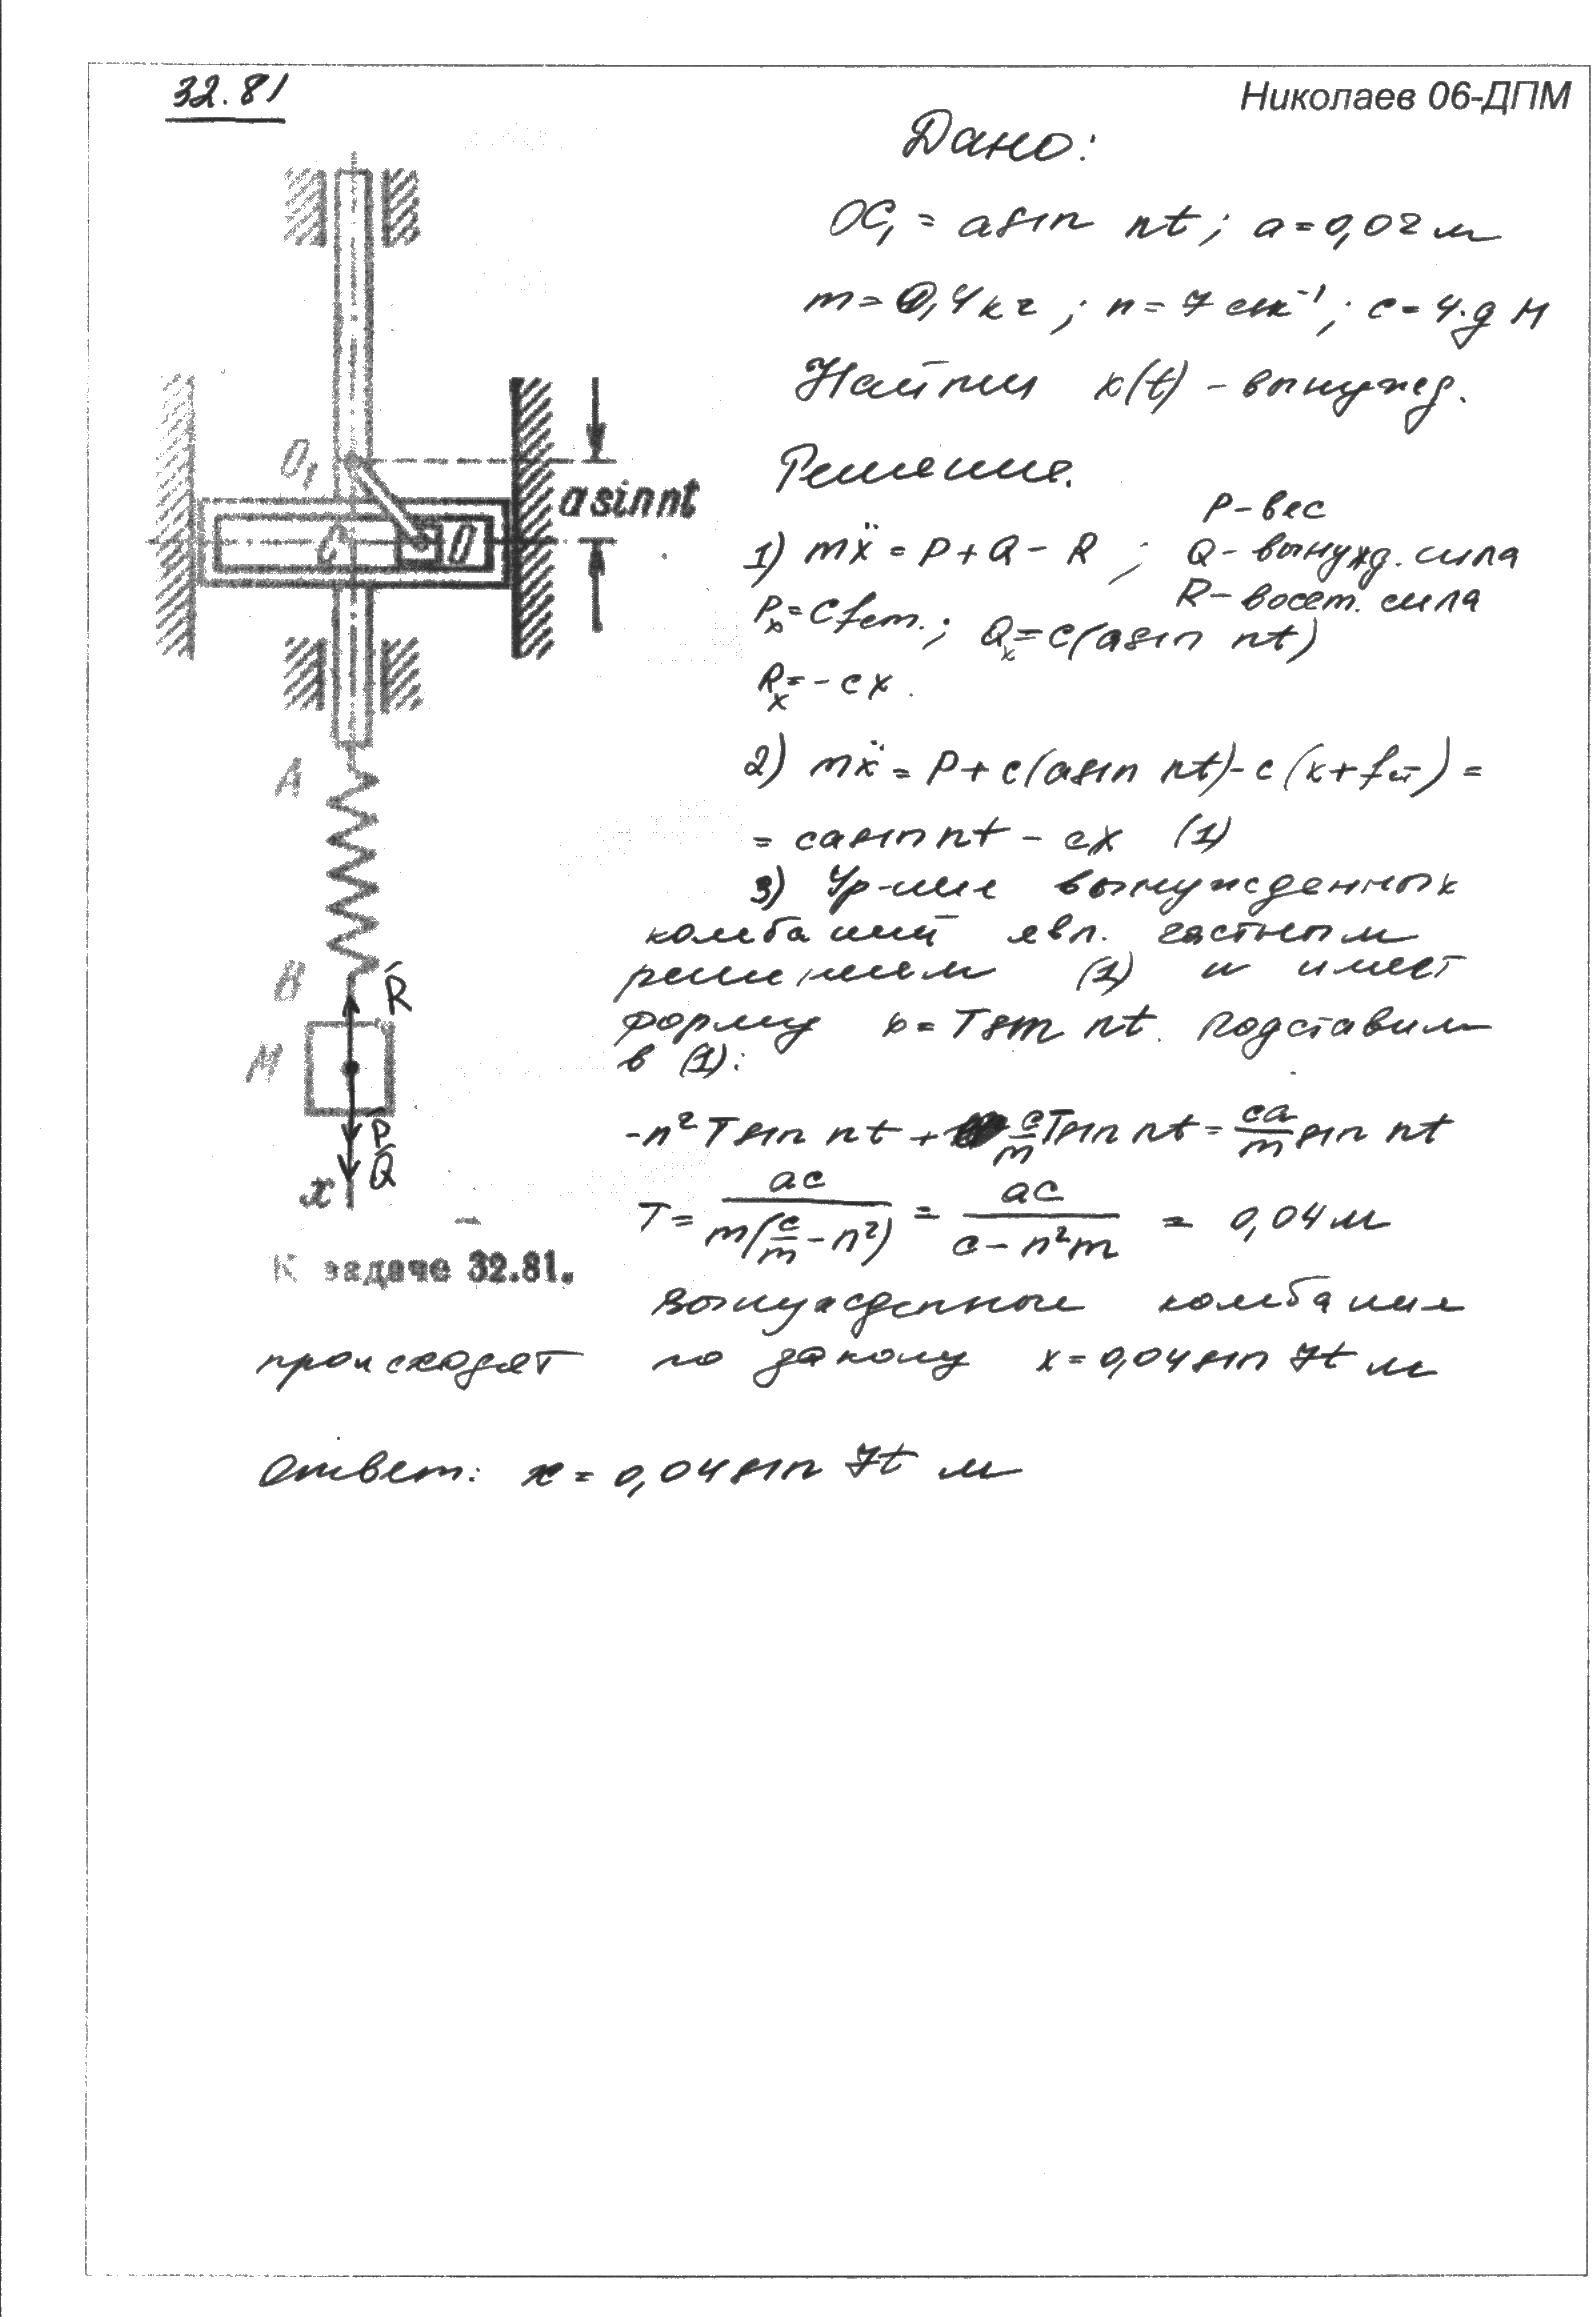 32.81
Николаев 06-ДПМ
Дано:
OC₁ = a sin nt; a = 0,02 м
m = 0,4 кг; n = 7 сек⁻¹; c = 4·g Н
Найти x(t) - вынужд.
Решение.
P - вес
1) mẍ = P + Q - R; Q - вынужд. сила
R - восст. сила
Pₓ = C fст.; Qₓ = c(a sin nt)
Rₓ = - cx.
2) mẍ = P + c(a sin nt) - c(x + fст) =
= ca sin nt - cx (1)
3) Ур-ние вынужденных
колебаний явл. частным
решением (1) и имеет
форму x = T sin nt. Подставим
в (1):
-n² T sin nt + c/m T sin nt = ca/m sin nt
T = ac/m(c/m - n²) = ac/c - n²m = 0,04 м
Вынужденные колебания
происходят по закону x = 0,04 sin 7t м
Ответ: x = 0,04 sin 7t м
O₁
a sin nt
C
O
A
B
R
M
P
Q
x
К задаче 32.81.